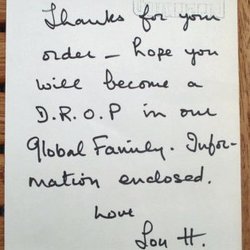 Thanks for your
order – hope you
will become a
D.R.O.P in our
Global Family. Infor-
mation enclosed.
Love
Lou H.